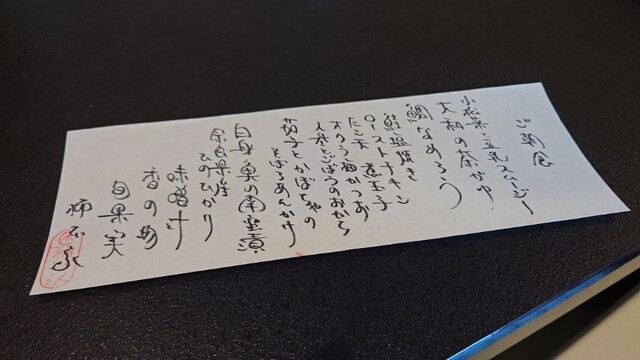 ご朝食
小松菜・豆乳スムージー
大和の茶がゆ
鯛なめろう
鮭塩焼き
ローストチキン
煮玉子
オクラ梅かつお
人参とごぼうのおから
茄子とかぼちゃの
そぼろあんかけ
奈良県産
ひのひかり
味噌汁
香の物
旬果実